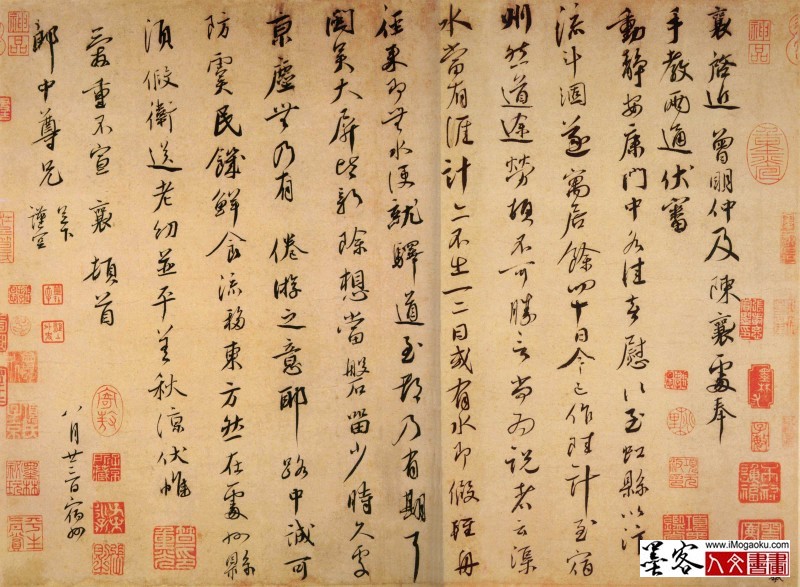 襄啓近曾明仲及陳襄處奉
手教兩通伏審
動靜安康門中各佳喜慰〻至虹縣以汴
流斗涸遂寓居餘四十日今已作陸計至宿
州然道途勞頓不可勝言尚為說者云渠
水當有涯計亦不出一二日或有水即假輕舟
徑來即無水便就驛道至都乃有期耳
閩吳大屏皆新除想當磐留少時久處
京塵無乃有倦游之意耶路中誠可
防虞民飢鮮食流移東方然在處州縣
須假衛送老幼並平善秋涼伏惟
重不宣襄頓首
郎中尊兄足下
謹空
八月廿三日宿州
www.iMogaoku.com
墨客
人文書畫